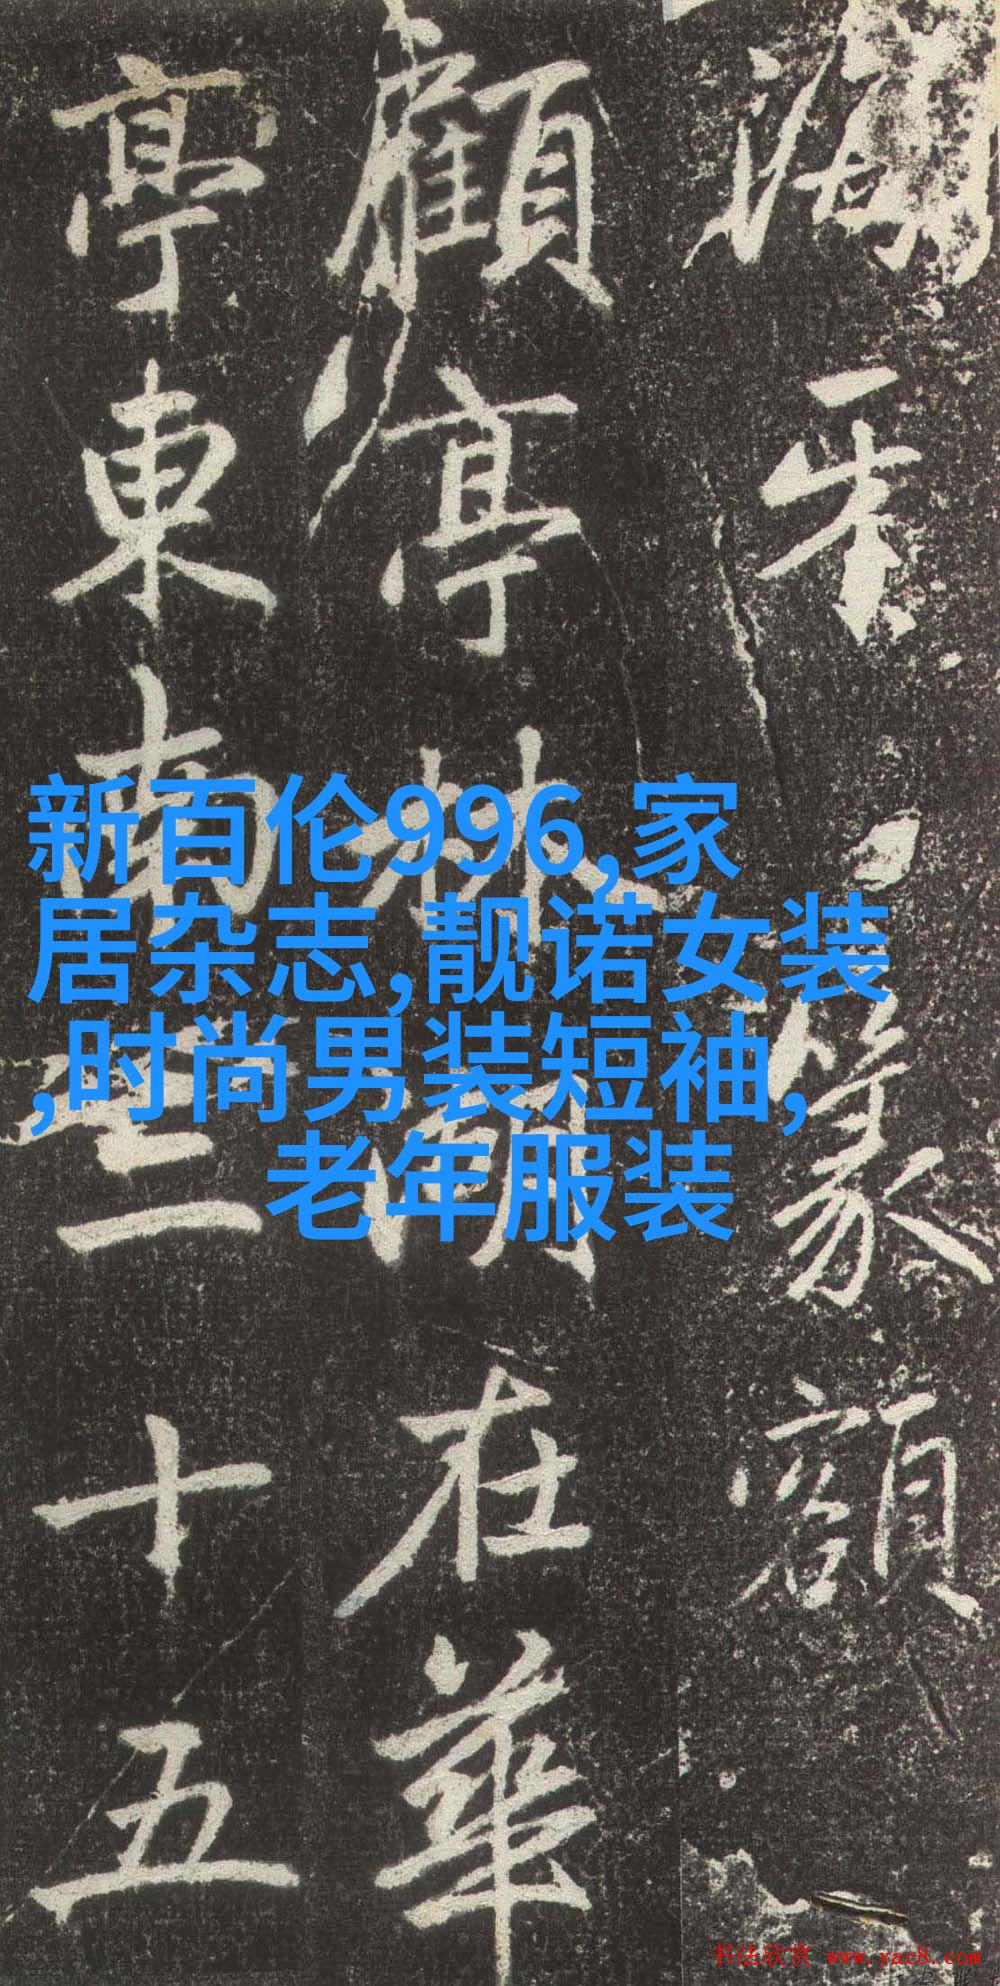 篆額
顧亭林湖在華
亭東南三十五
新百伦996,家
居杂志,靓诺女装
,时尚男装短袖,
老年服装
书法欣赏 www.yac8.com